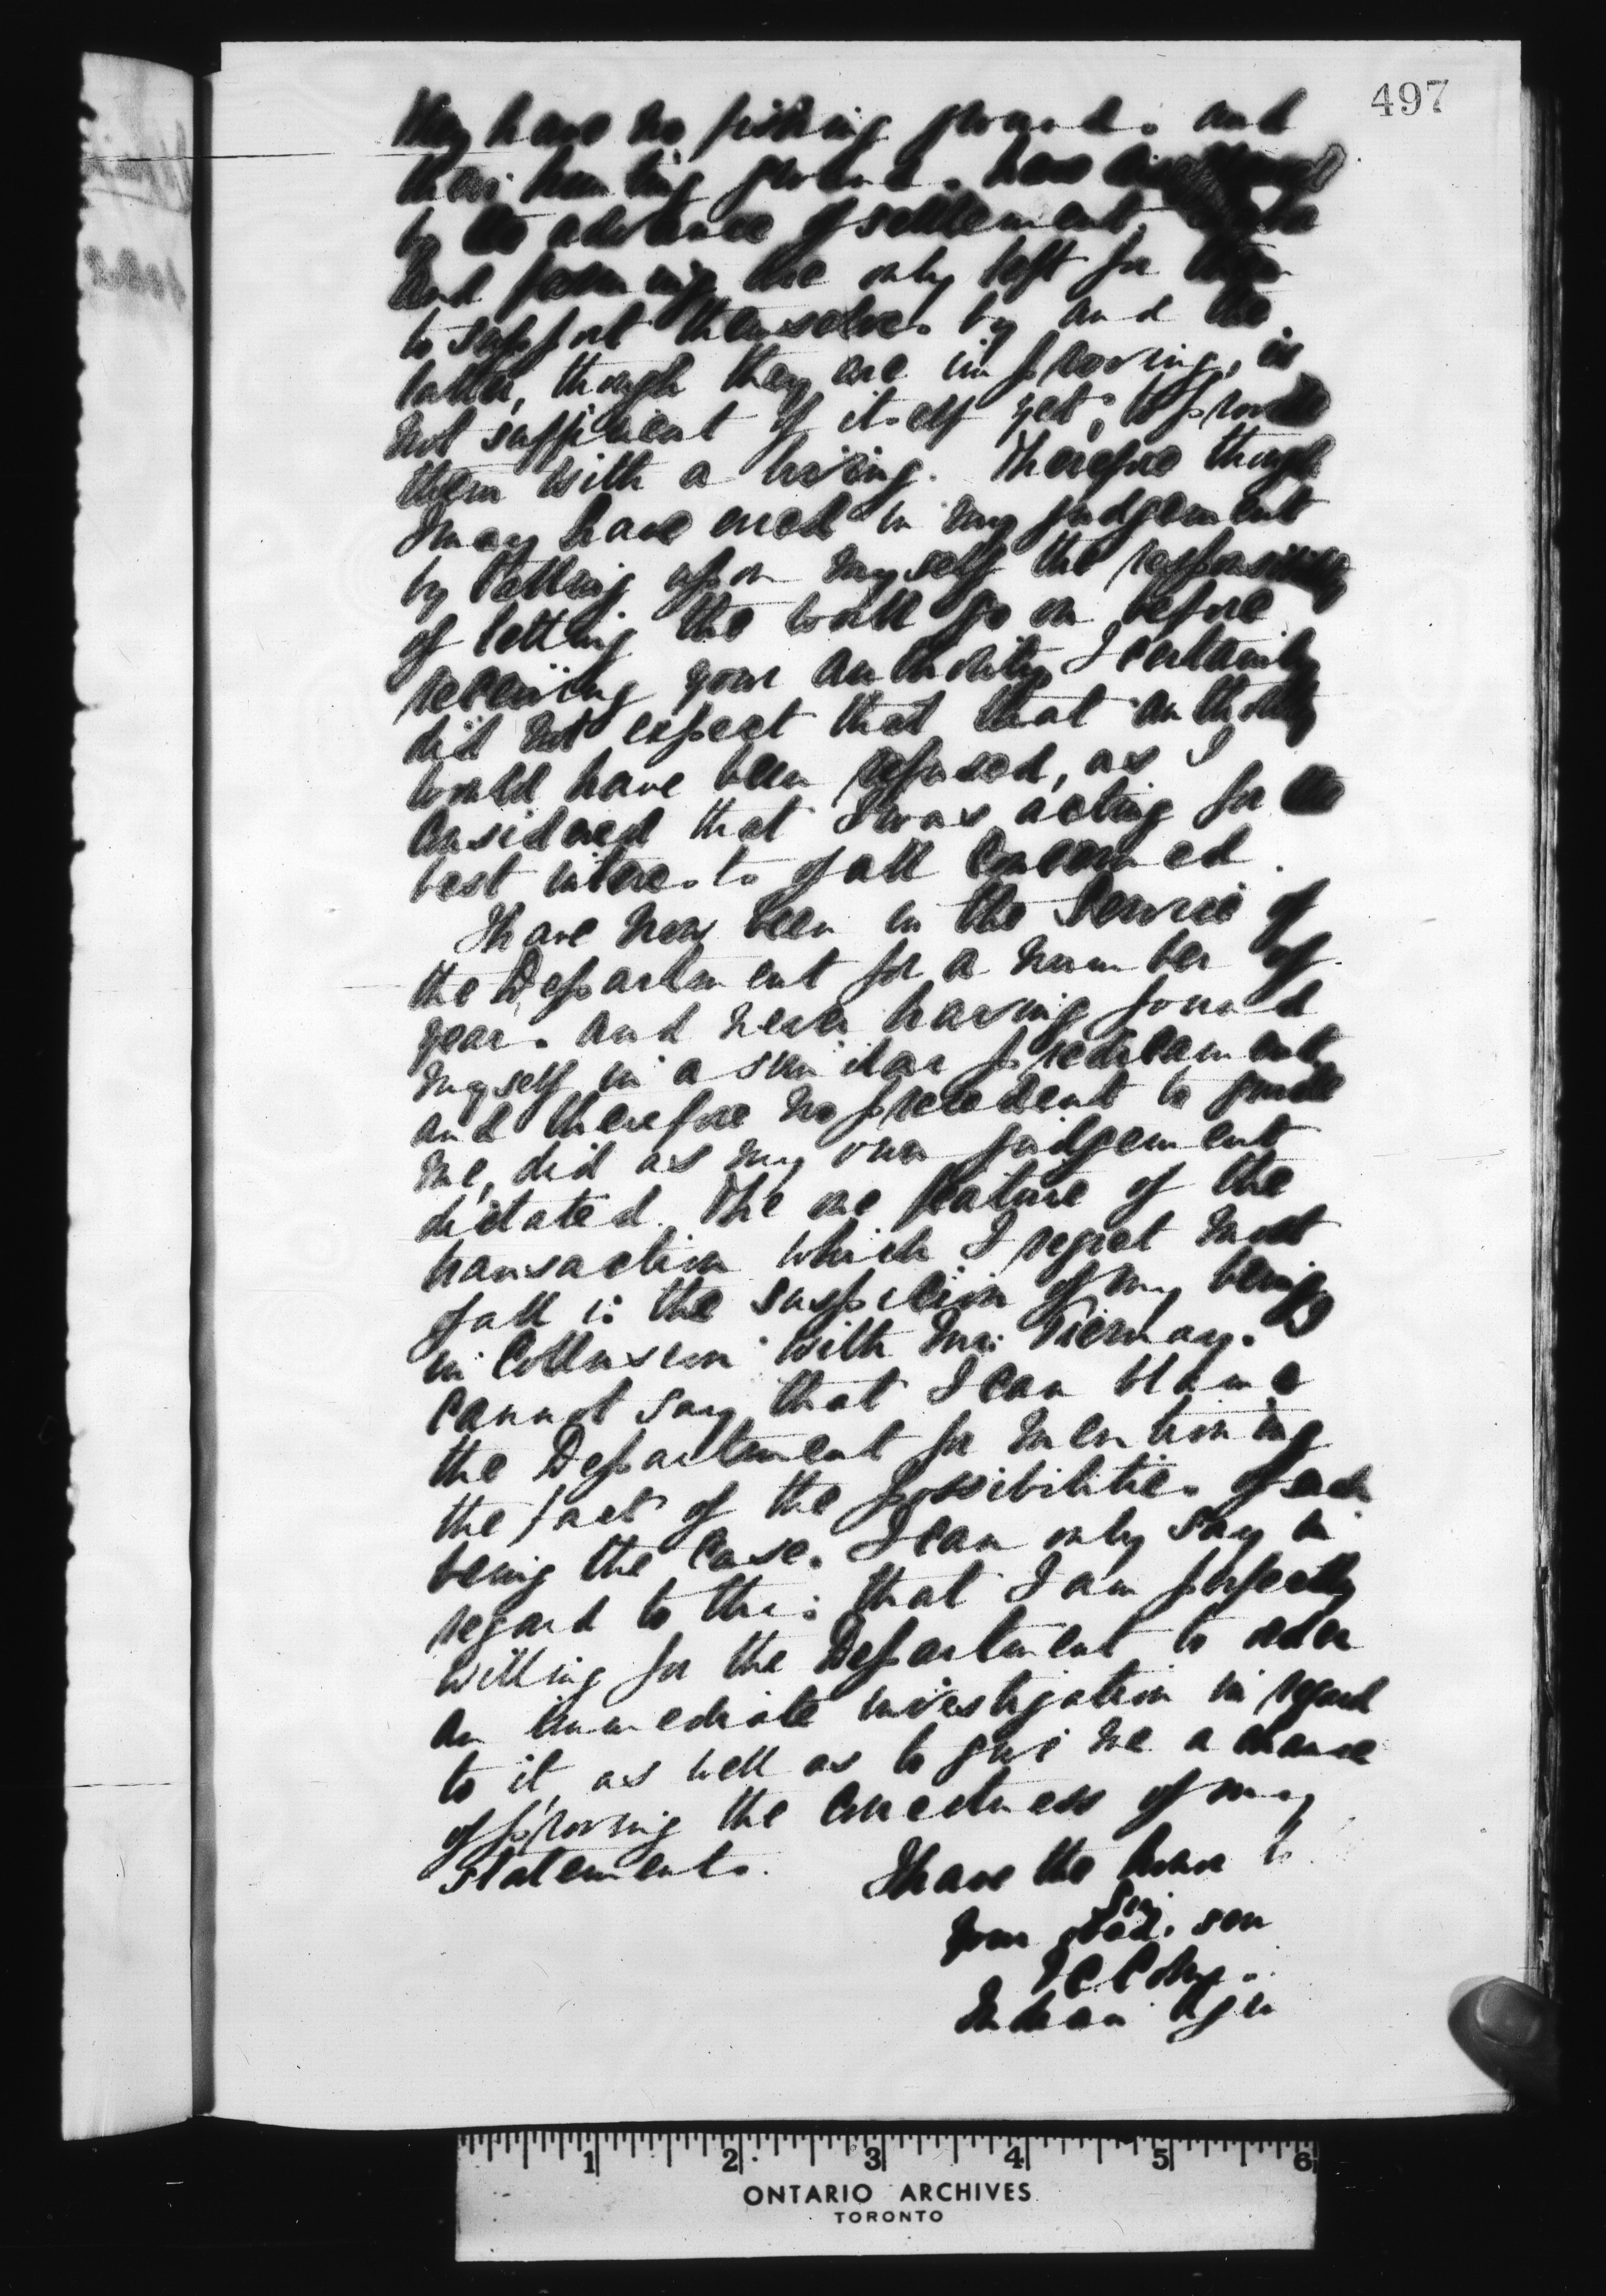 497
They have no fishing grounds and
their hunting grounds have
by the advance of settlement,
and farming are only left for them
to support themselves by and the
latter, though they are improving, is
not sufficient of itself yet, to provide
them with a living. Therefore though
I may have erred in my judgement
by taking upon myself the responsibility
of letting the work go on before
receiving your authority I certainly
did not expect that that authority
would have been refused, as I
considered that I was acting for the
best interests of all concerned.
I have now been in the Service of
the Department for a number of
years and never having found
myself in a similar predicament
and therefore no precedent to guide
me, did as my own judgement
dictated. The one feature of the
transaction which I regret most
of all is the suspicion of my being
in Collusion with Mr. Tiernay. I
cannot say that I can blame
the Department for mentioning
the fact of the possibilities of such
being the case. I can only say in
regard to this that I am perfectly
willing for the Department to order
an immediate investigation in regard
to it, as well as to give me a chance
of proving the correctness of my
statements.
I have the honor to
Sir
Your obed. ser

Indian Agen
ONTARIO ARCHIVES
TORONTO
1 2 3 4 5 6